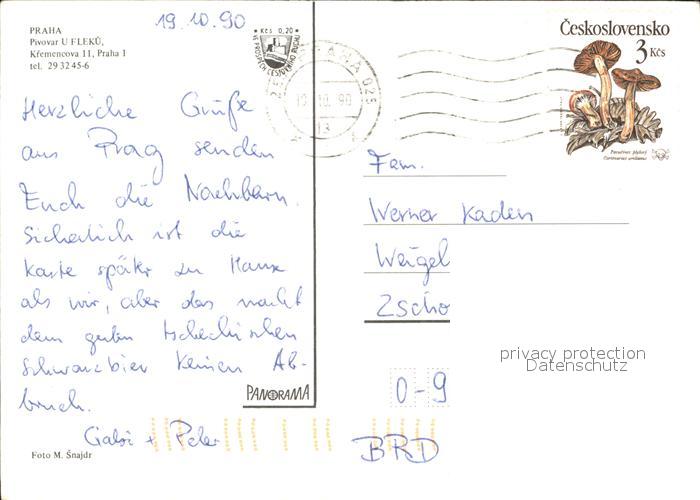 19.10.90
PRAHA
Pivovar U FLEKŮ,
Křemencova 11, Praha 1
tel. 29 32 45-6
Kčs 0,20
PRAHA 025
19.10.90
13
Československo
3 Kčs
Cortinarius orellanus
Herzliche Grüße
aus Prag senden
Euch die Nachbarn.
Sicherlich ist die
Karte später zu Hause
als wir, aber das macht
dem guten tschechischen
Schwarzbier keinen Ab-
bruch.
Gabi + Peter
Foto M. Šnajdr
PANORAMA
Fam.
Werner Kaden
Weigel
Zscho
0-9
BRD
privacy protection
Datenschutz